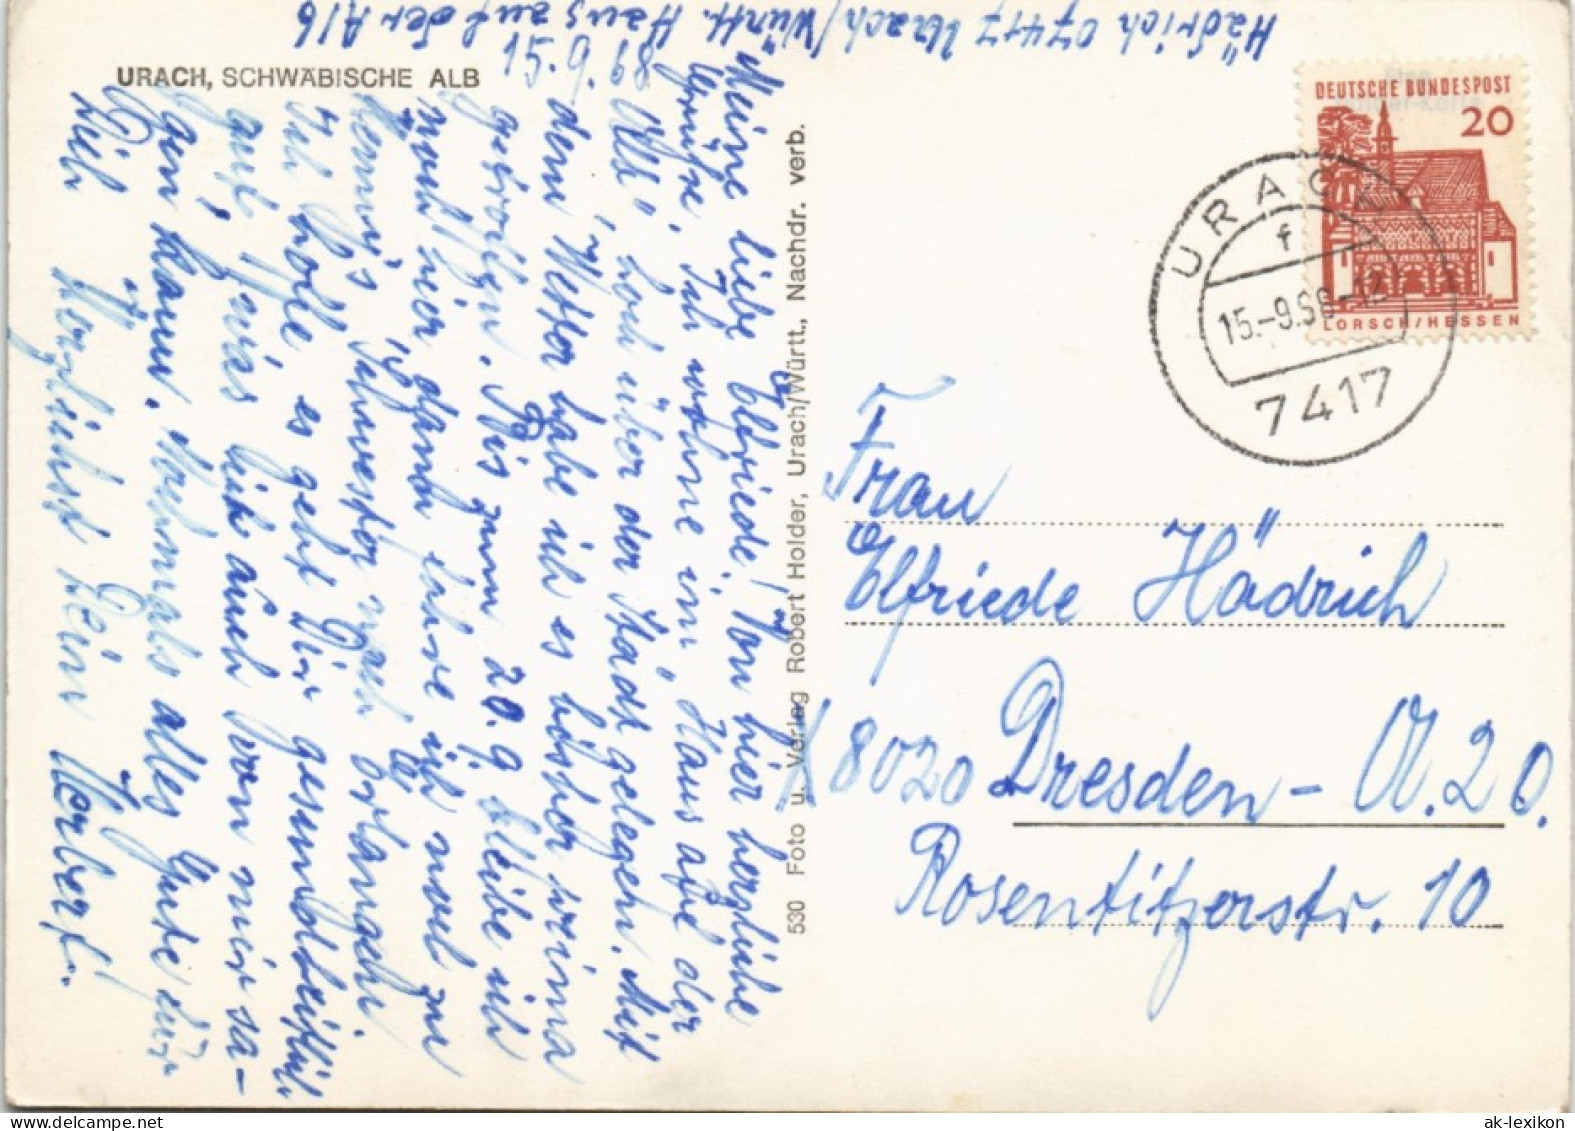 Hädrich 07417 Urach/Württ. Haus auf der Alb
URACH, SCHWÄBISCHE ALB
15.9.68
"Meine liebe Elfriede! Von hier herzliche
Grüße. Ich wohne im "Haus auf der
Alb", hoch über der Stadt gelegen. Mit
dem Wetter habe ich es bisher prima
getroffen. Bis zum 20.9. bleibe ich
noch hier, dann fahre ich noch zu
Schwester nach Erlangen.
Ich hoffe, es geht Dir gesundheitlich
gut, was ich auch von mir sa-
gen kann. Nochmals alles Gute für
Dich
Herzlichst Dein Herbert.
530 Foto u. Verlag Robert Holder, Urach/Württ., Nachdr. verb.
DEUTSCHE BUNDESPOST
20
LORSCH/HESSEN
URACH
f
15.-9.68-12
7417
Frau
Elfriede Hädrich
X 8020 Dresden - A. 20.
Rosentitzerstr. 10
ak-lexikon